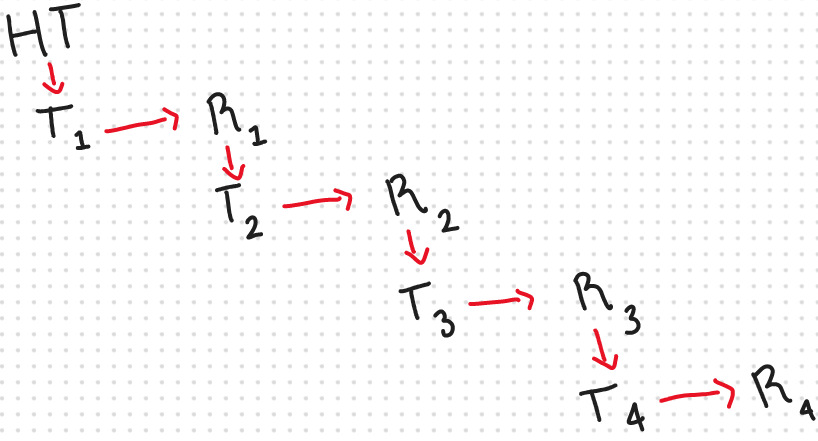 HT
T1 R1
T2 R2
T3 R3
T4 R4